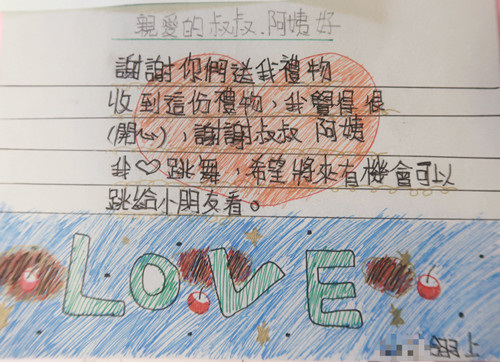 親愛的叔叔.阿姨好
謝謝你們送我禮物
收到這份禮物，我覺得很
(開心)，謝謝叔叔 阿姨
我♡跳舞，希望將來有機會可以
跳給小朋友看。
LOVE
上